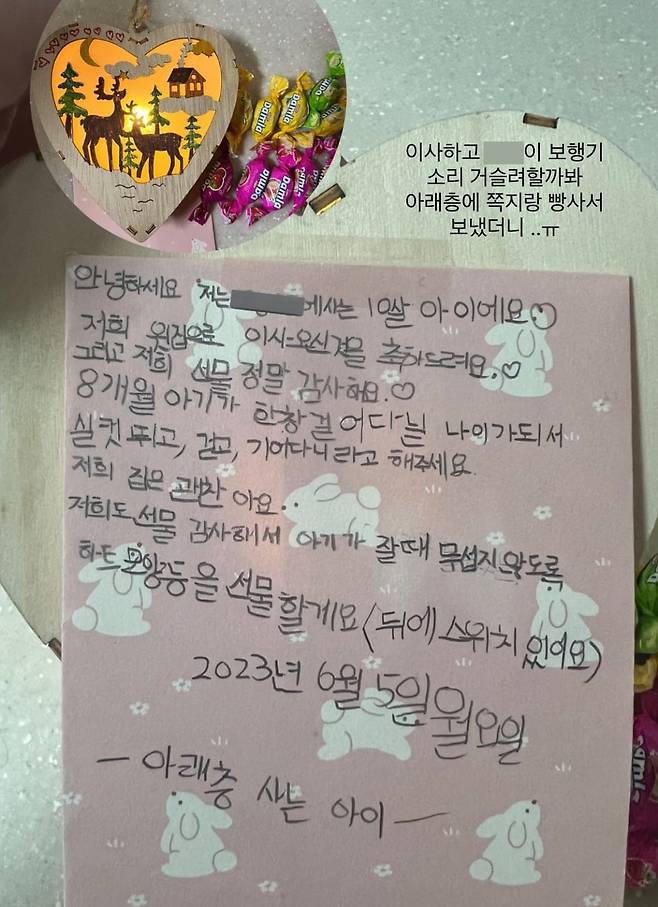 이사하고 이 보행기
소리 거슬려할까봐
아래층에 쪽지랑 빵사서
보냈더니 ..ㅠ
Damla
Damla
Damla
Damla
안녕하세요 저는 에사는 10살 아이에요
저희 윗집으로 이사오신걸을 축하드려요.♡
그리고 저희 선물 정말 감사해요.♡
8개월 아기가 한창 걸어다닐 나이가되서
실컷 뛰고, 걷고, 기어다니라고 해주세요.
저희 집은 괜찬아요.
저희도 선물 감사해서 아기가 잘때 무섭지 않도록
하트 모양등을 선물할게요(뒤에 스위치 있어요)
2023년 6월 5일 월요일
- 아래층 사는 아이 -
Damla